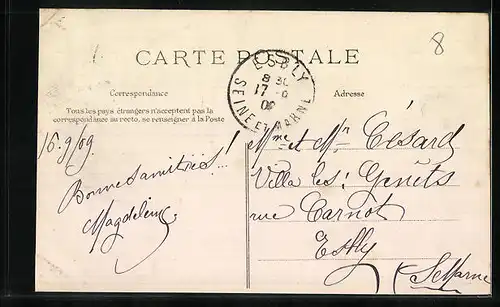 8
CARTE POSTALE
ESBLY
8 30
17 -9
09
SEINE ET MARNE
Correspondance
Adresse
Tous les pays étrangers n'acceptent pas la
correspondance au recto, se renseigner à la Poste
16.9/09
Bonnes amitiés!!!
Magdeleine
Mme et Mr Césard
Villa les: Genêts
rue Carnot
Esbly
(S. Marne